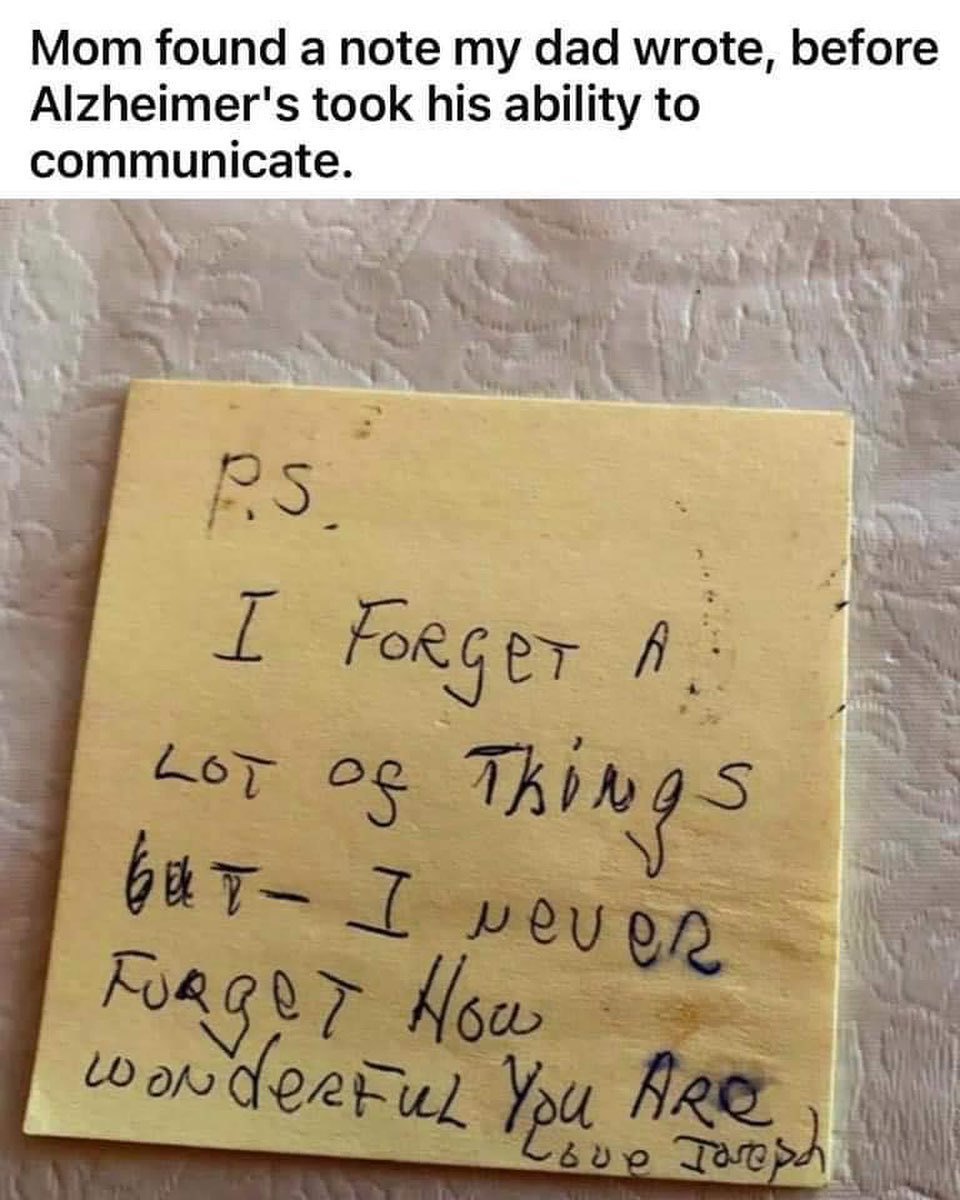 Mom found a note my dad wrote, before
Alzheimer's took his ability to
communicate.
P.S.
I FORgeT A
LOT of Things
buT- I NeveR
FORgeT How
wONdeRFuL You ARe
Love Joseph